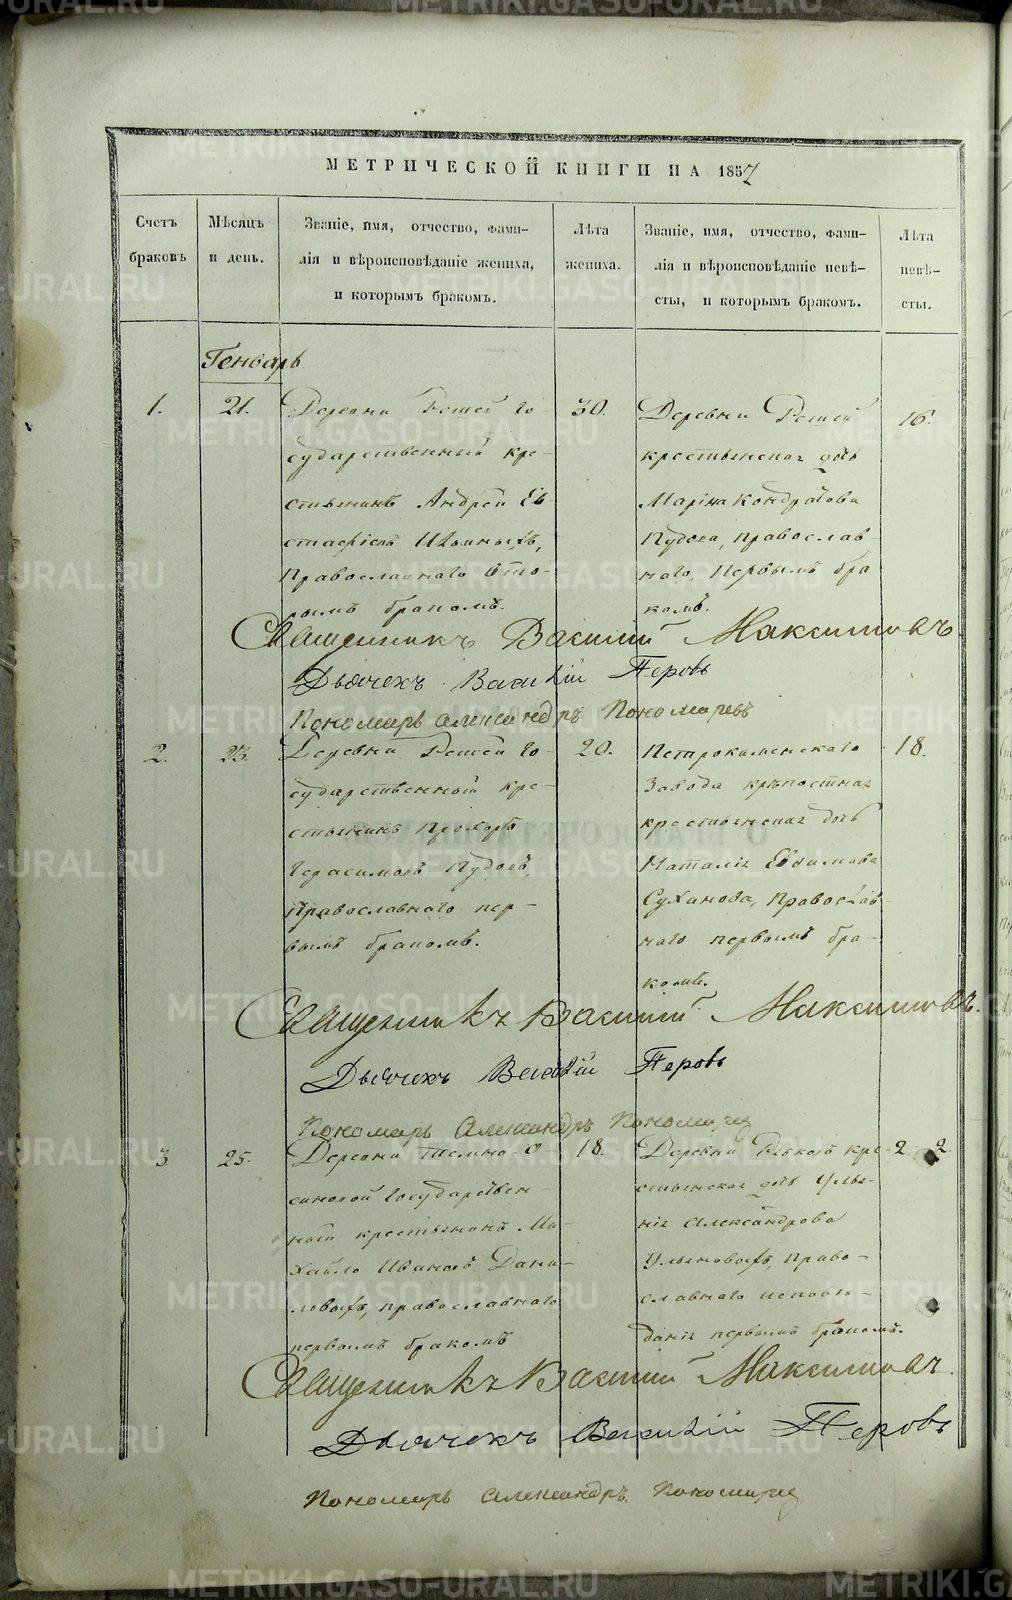 МЕТРИЧЕСКОЙ КНИГИ НА 1857
Счетъ браковъ
Мѣсяцъ и день.
Званіе, имя, отчество, фами-
лія и вѣроисповѣданіе жениха,
и которымъ бракомъ.
Лѣта жениха.
Званіе, имя, отчество, фами-
лія и вѣроисповѣданіе невѣ-
сты, и которымъ бракомъ.
Лѣта невѣ-
сты.
Генварь
1.
21.
Деревни Решей го-
сударственный кре-
стьянинъ Андрей Ев
стафіевъ
Православнаго вто-
рымъ бракомъ.
30.
Деревни Решей
крестьянская дочь
Марина Кондратова
Пудова, православ-
наго, первымъ бра
комъ.
16.
Священникъ Василій Максимовъ
Дьячекъ Василій Перовъ
Пономарь Александръ Пономаревъ
2.
23.
Деревни Решей го-
сударственный кре-
стьянинъ Прохоръ
Герасимовъ Пудовъ,
Православнаго пер-
вымъ бракомъ.
20.
Петрокаменскаго
Завода крѣпостная
крестьянская дочь
Наталія Евдимова
Суханова, Православ-
наго первымъ бра-
комъ.
18.
Священникъ Василій Максимовъ
Дьячекъ Василій Перовъ
Пономарь Александръ Пономаревъ
3
25.
Деревни Темно-О-
синовой Государствен-
ный крестьянинъ Ми-
хайло Ивановъ Дани-
ловыхъ, православнаго
первымъ бракомъ
18.
Деревни кре-
стьянская дочь Улья-
нія Александрова
Ульяновыхъ, Право-
славнаго исповѣ-
данія первымъ бракомъ.
22
Священникъ Василій Максимовъ
Дьячекъ Василій Перовъ
Пономарь Александръ Пономаревъ
METRIKI.GASO-URAL.RU